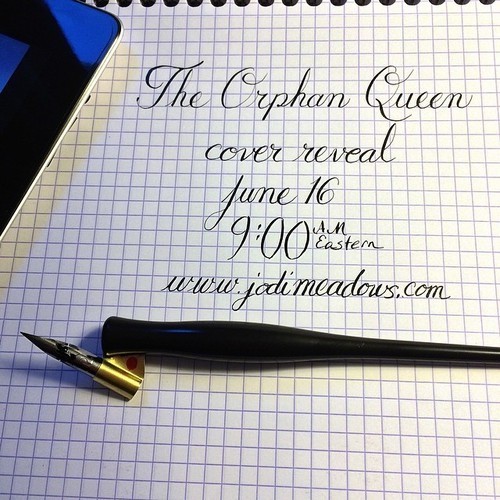 The Orphan Queen
cover reveal
june 16
9:00 A.M Eastern
www.jodimeadows.com